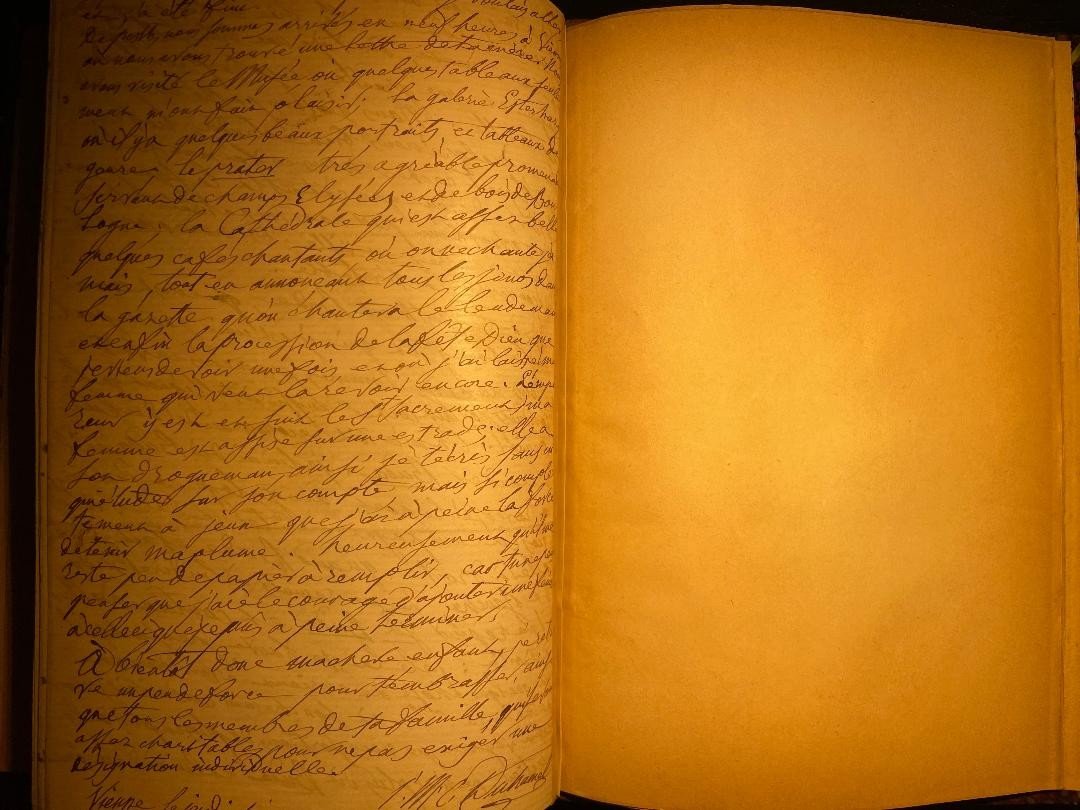 de Pesth, nous sommes arrivés en neuf heures à Vienne
où nous avons trouvé une lettre de
avons visité le Musée, où quelques tableaux seule
ment m'ont fait plaisir; la galerie Esterhazy
où il y a quelques beaux portraits, et tableaux de
genre, le prater très agréable promenade
servant de champs Elysées et de bois de Bou
logne, la Cathédrale qui est assez belle
quelques cafés chantants où on ne chante ja
mais, tout en annonçant tous les jours dans
la gazette qu'on chantera le lendemain
et enfin la procession de la fête Dieu que
je viens de voir une fois et où j'ai laissé ma
femme qui veut la revoir encore. L'empe
reur y est et suit le St Sacrement; ma
femme est assise sur une estrade; elle a
son drogueman, ainsi je t'écris sans in
quiétudes sur son compte, mais si complè
tement à jeun que j'ai à peine la force
de tenir ma plume. heureusement qu'il me
reste peu de papier à remplir, car tu ne peux
penser que j'aie le courage d'ajouter une feuille
à celle ci que je puis à peine terminer.
À bientôt donc ma chere enfant, je retrou
ve un peu de force pour t'embrasser, ainsi
que tous les membres de ta famille, que
assez charitables pour ne pas exiger une
désignation individuelle.
J. M. C. Duhamel
Vienne le jeudi